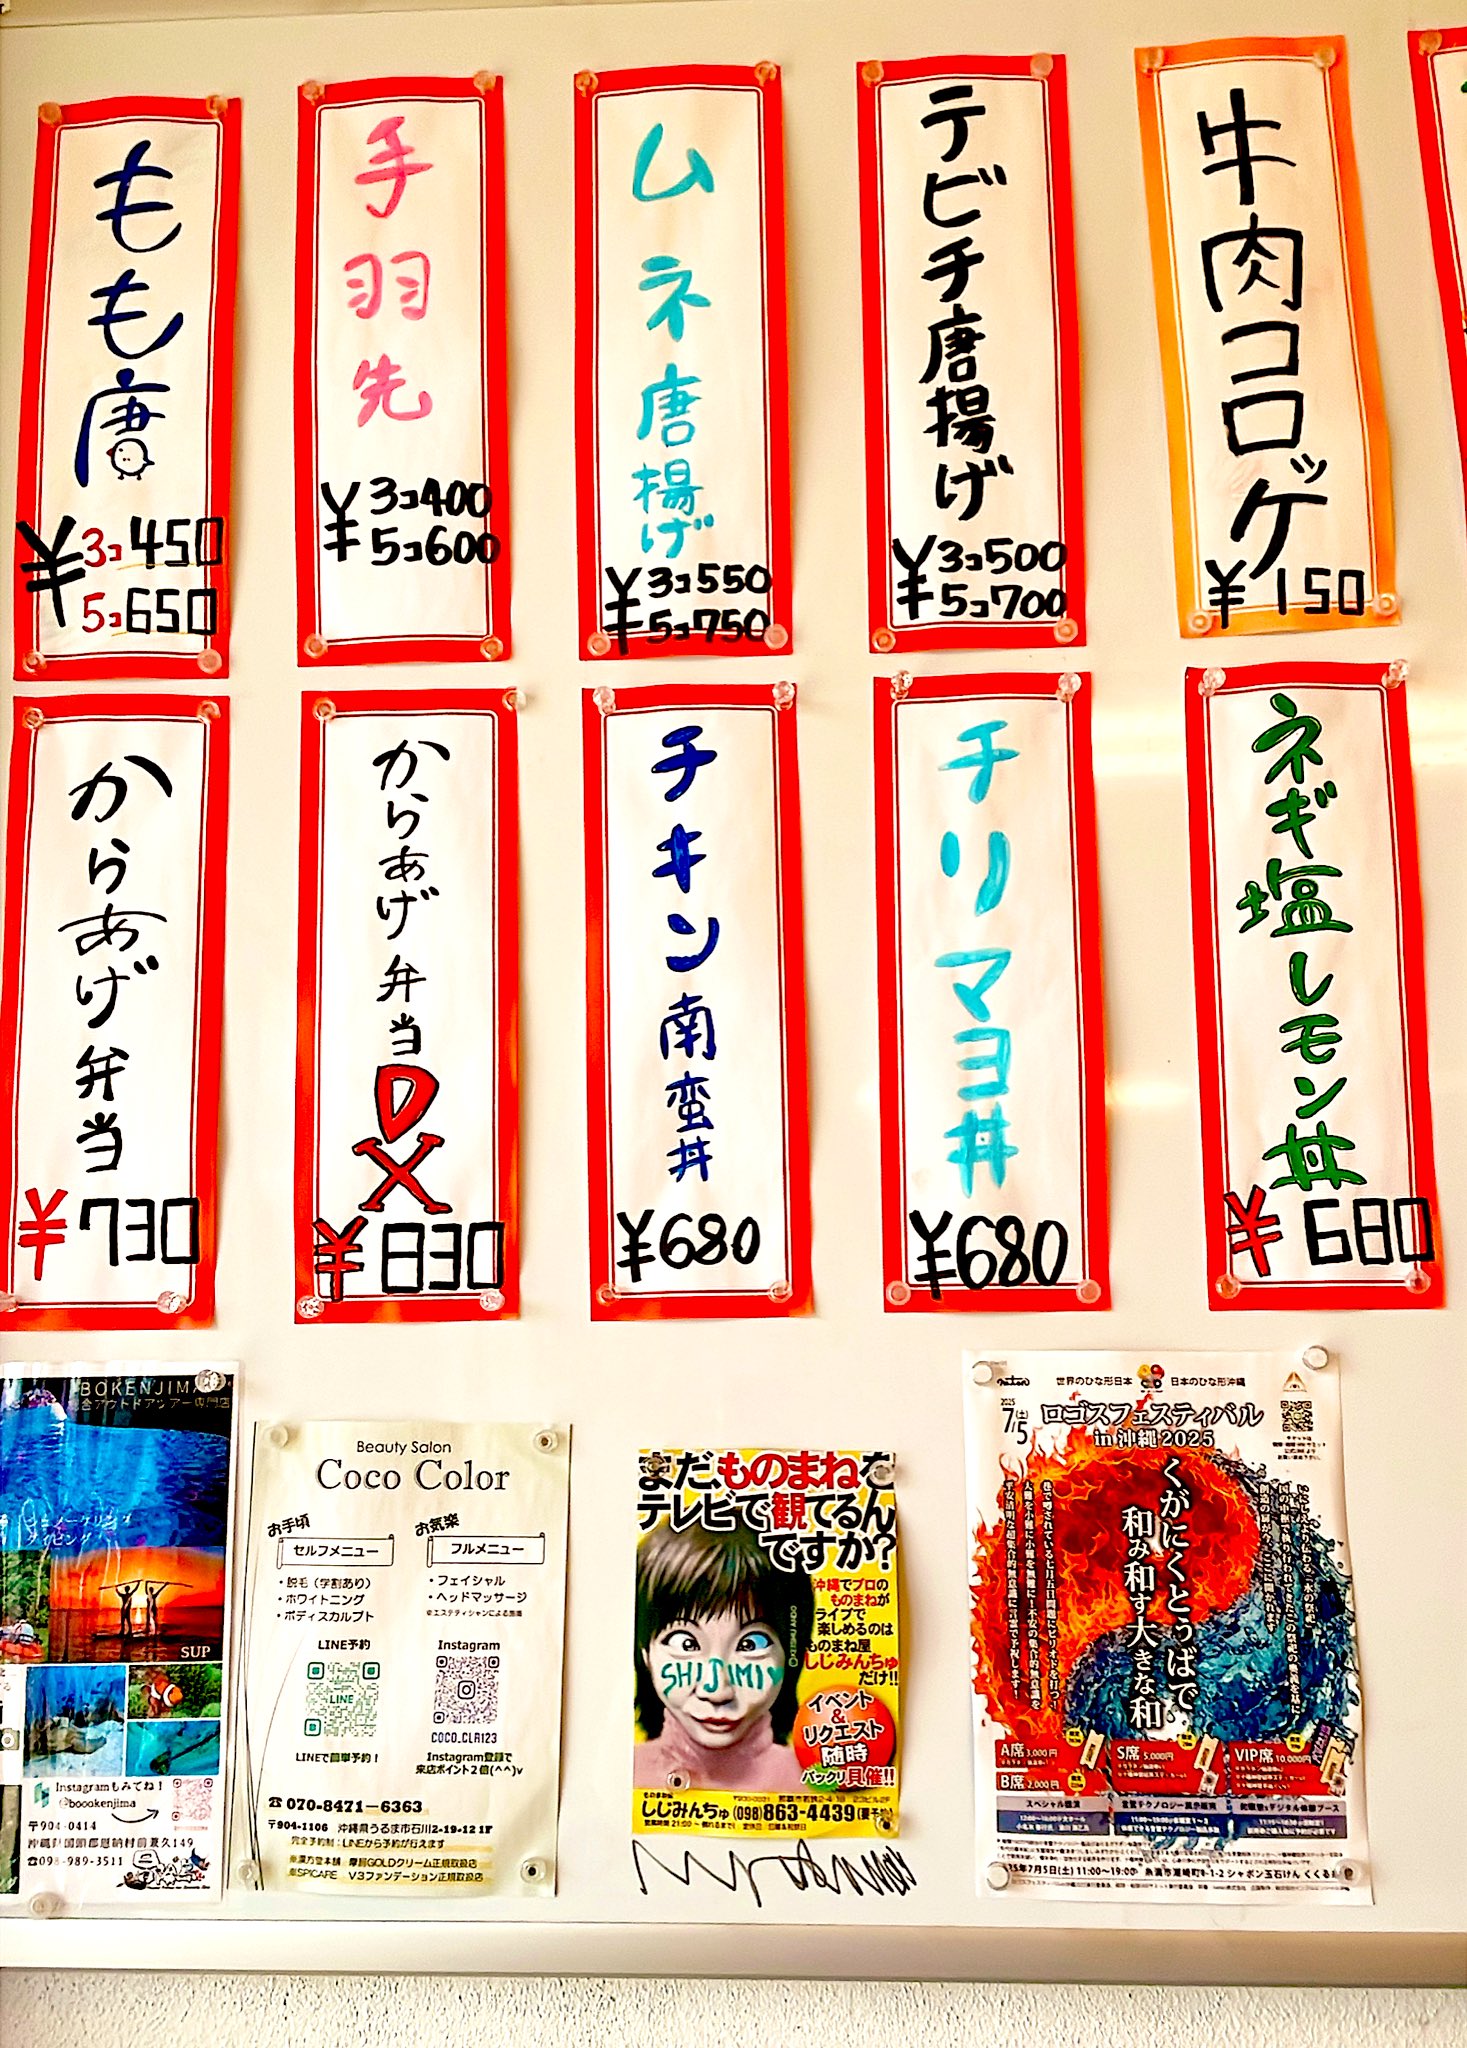 もも唐
¥ 3コ450
5コ650
手羽先
¥ 3コ400
5コ600
ムネ唐揚げ
¥ 3コ550
5コ750
テビチ唐揚げ
¥ 3コ500
5コ700
牛肉コロッケ
¥150
からあげ弁当
¥730
からあげ弁当DX
¥830
チキン南蛮丼
¥680
チリマヨ丼
¥680
ネギ塩レモン丼
¥680
BOKENJIMA
アウトドアツアー専門店
シュノーケリング
ダイビング
SUP
Instagramもみてね!
@boookenjima
〒904-0414
沖縄県国頭郡恩納村前兼久149
☎098-989-3511
Beauty Salon
Coco Color
お手頃
セルフメニュー
・脱毛(学割あり)
・ホワイトニング
・ボディスカルプト
お気楽
フルメニュー
・フェイシャル
・ヘッドマッサージ
※エステティシャンによる施術
LINE予約
LINE
LINEで簡単予約!
Instagram
COCO_CLR123
Instagram登録で
来店ポイント2倍(^^)v
☎ 070-8471-6363
〒904-1106 沖縄県うるま市石川2-19-12 1F
完全予約制:LINEから予約が行えます
※漢方堂本舗 摩訶GOLDクリーム正規取扱店
※SPICARE V3ファンデーション正規取扱店
まだ、ものまねを
テレビで観てるん
ですか?
沖縄でプロの
ものまねが
ライブで
楽しめるのは
ものまね屋
しじみんちゅ
だけ!!
SHIJIMI
イベント
&
リクエスト
随時
バックリ開催!!
しじみんちゅ (098)863-4439(要予約)
世界のひな形日本 日本のひな形沖縄
2025
7/5(土)
ロゴスフェスティバル
in 沖縄 2025
くがにくとぅばで
和み和す大きな和
A席 3,000円
B席 2,000円
S席 5,000円
VIP席 10,000円
スペシャル講演